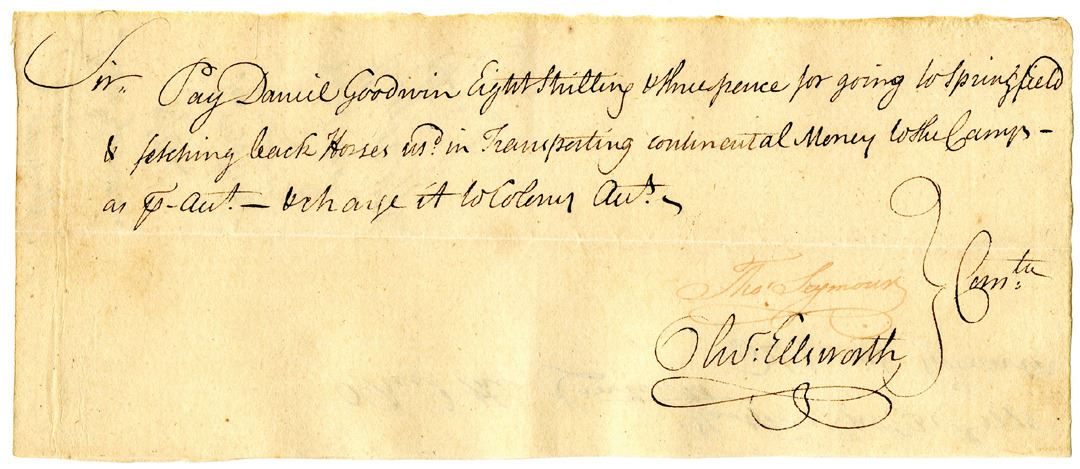 Sir. Pay Daniel Goodwin Eight Shilling & three pence for going to Springfield
& fetching back Horses usd. in Transporting continental Money to the Camp -
as pr Acct. - & charge it to Colony Acct.
Thos. Seymour
Comtee
Olivr. Ellsworth